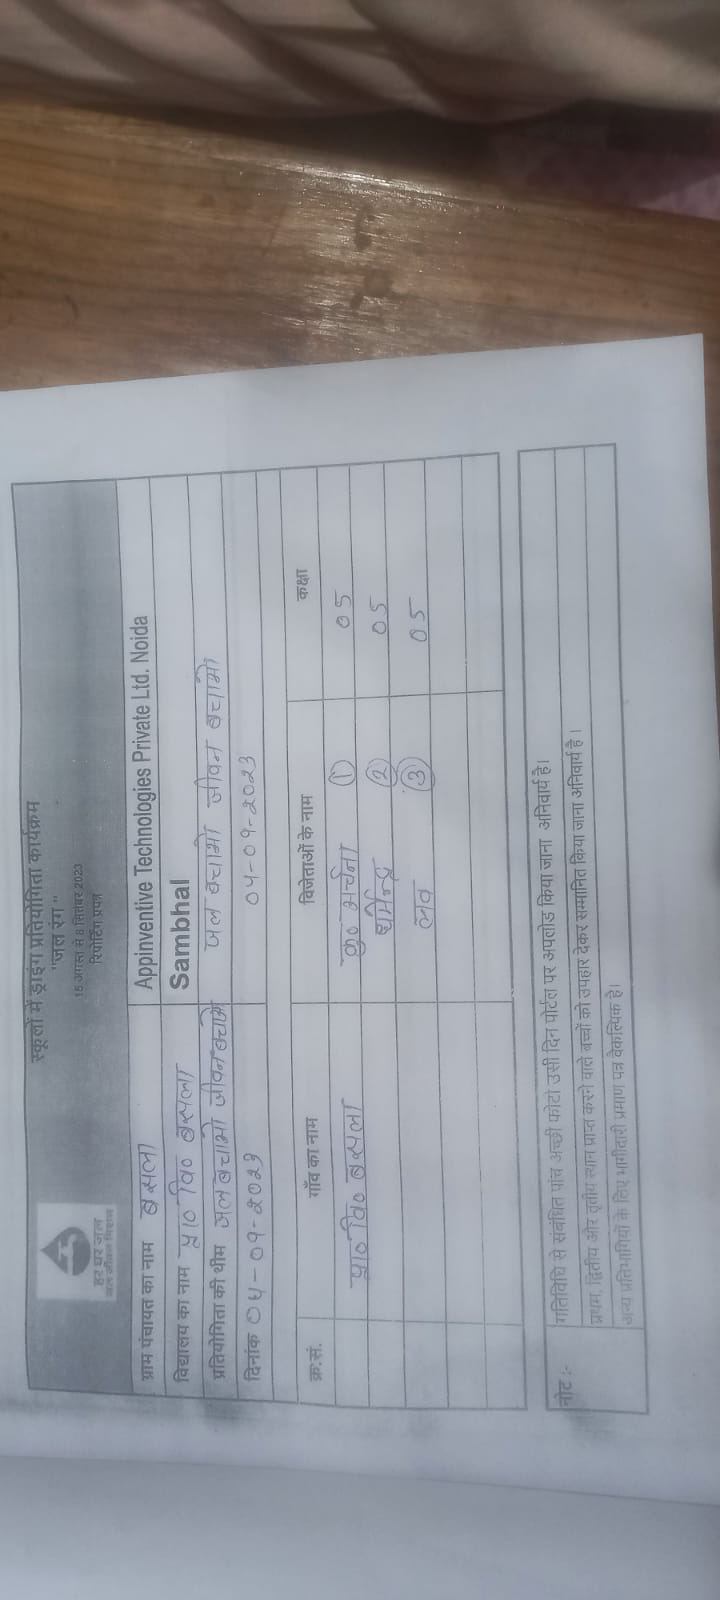 हर घर जल
जल जीवन मिशन
स्कूलों में ड्राइंग प्रतियोगिता कार्यक्रम
"जल रंग"
15 अगस्त से 8 सितंबर 2023
रिपोर्टिंग प्रपत्र
ग्राम पंचायत का नाम बसला Appinventive Technologies Private Ltd. Noida
विद्यालय का नाम प्रा० वि० बसला Sambhal
प्रतियोगिता की थीम जल बचाओ जीवन बचाओ जल बचाओ जीवन बचाओ
दिनांक 04-09-2023 04-09-2023
क्र.सं. गाँव का नाम विजेताओं के नाम कक्षा
प्रा० वि० बसला कु० अर्चना ① 05
धर्मेन्द्र ② 05
लव ③ 05
नोट :- गतिविधि से संबंधित पांच अच्छी फोटो उसी दिन पोर्टल पर अपलोड किया जाना अनिवार्य है।
प्रथम, द्वितीय और तृतीय स्थान प्राप्त करने वाले बच्चों को उपहार देकर सम्मानित किया जाना अनिवार्य है।
अन्य प्रतिभागियों के लिए भागीदारी प्रमाण पत्र वैकल्पिक है।